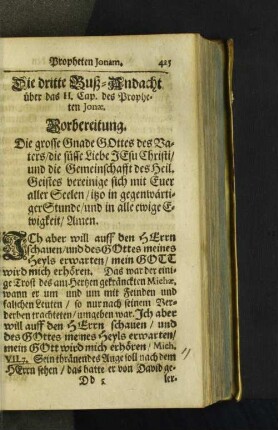 Propheten Jonam. 425
Die dritte Buß-Andacht
über das II. Cap. des Prophe-
ten Jonæ.
Vorbereitung.
Die grosse Gnade GOttes des Va-
ters/die süsse Liebe JEsu Christi/
und die Gemeinschafft des Heil.
Geistes vereinige sich mit Euer
aller Seelen/itzo in gegenwärti-
ger Stunde/und in alle ewige E-
wigkeit/Amen.
JCh aber will auff den HErrn
schauen/und des GOttes meines
Heyls erwarten/mein GOTT
wird mich erhören. Das war der eini-
ge Trost des am Hertzen gekränckten Michæ,
wann er um und um mit Feinden und
falschen Leuten/so nur nach seinem Ver-
derben trachteten/umgeben war. Jch aber
will auff den HErrn schauen/und
des GOttes meines Heyls erwarten/
mein GOtt wird mich erhören/Mich.
VII.7. Sein thränendes Auge soll nach dem
HErrn sehen/das hatte er von David ge-
Dd 5 ler-